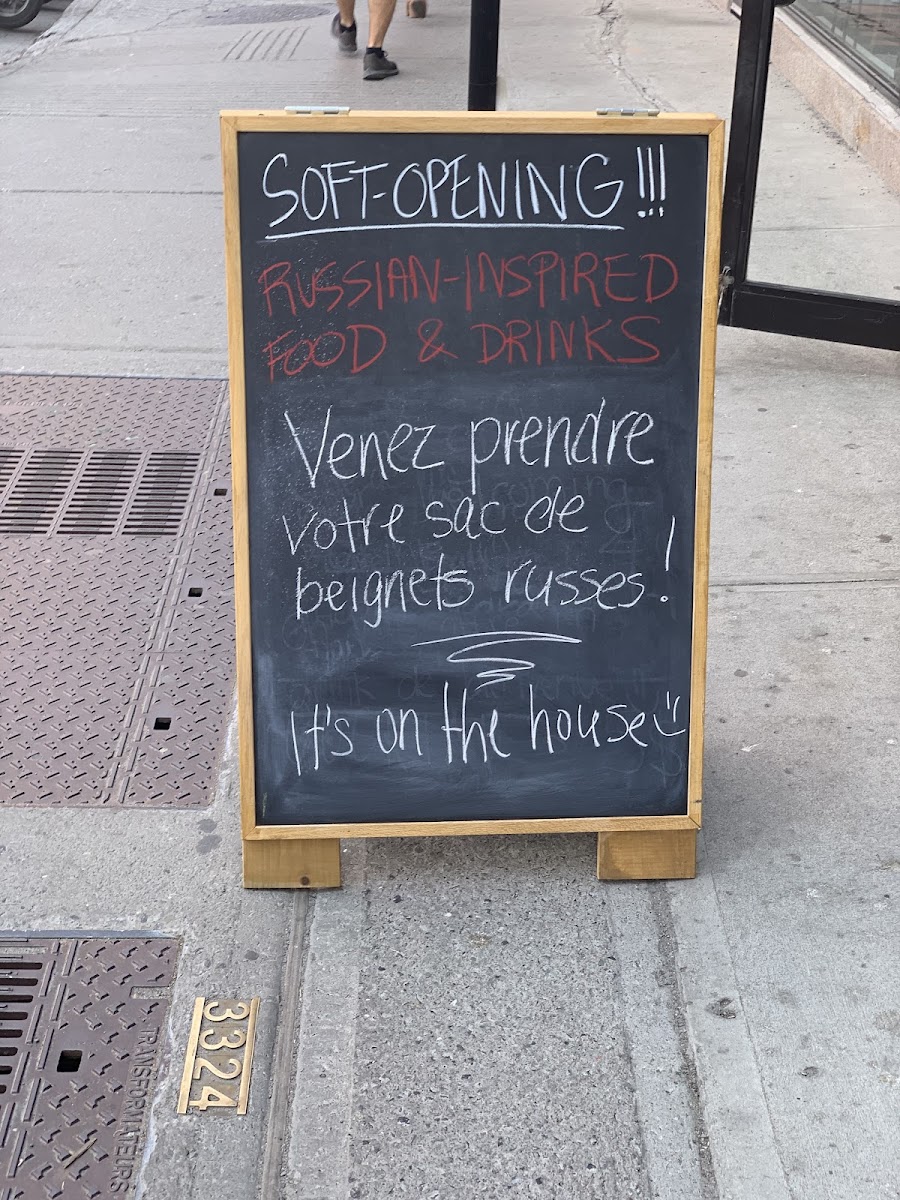 SOFT-OPENING!!!
RUSSIAN-INSPIRED
FOOD & DRINKS
Venez prendre
votre sac de
beignets russes!
It's on the house :)
3324
TRANSFORMATEURS